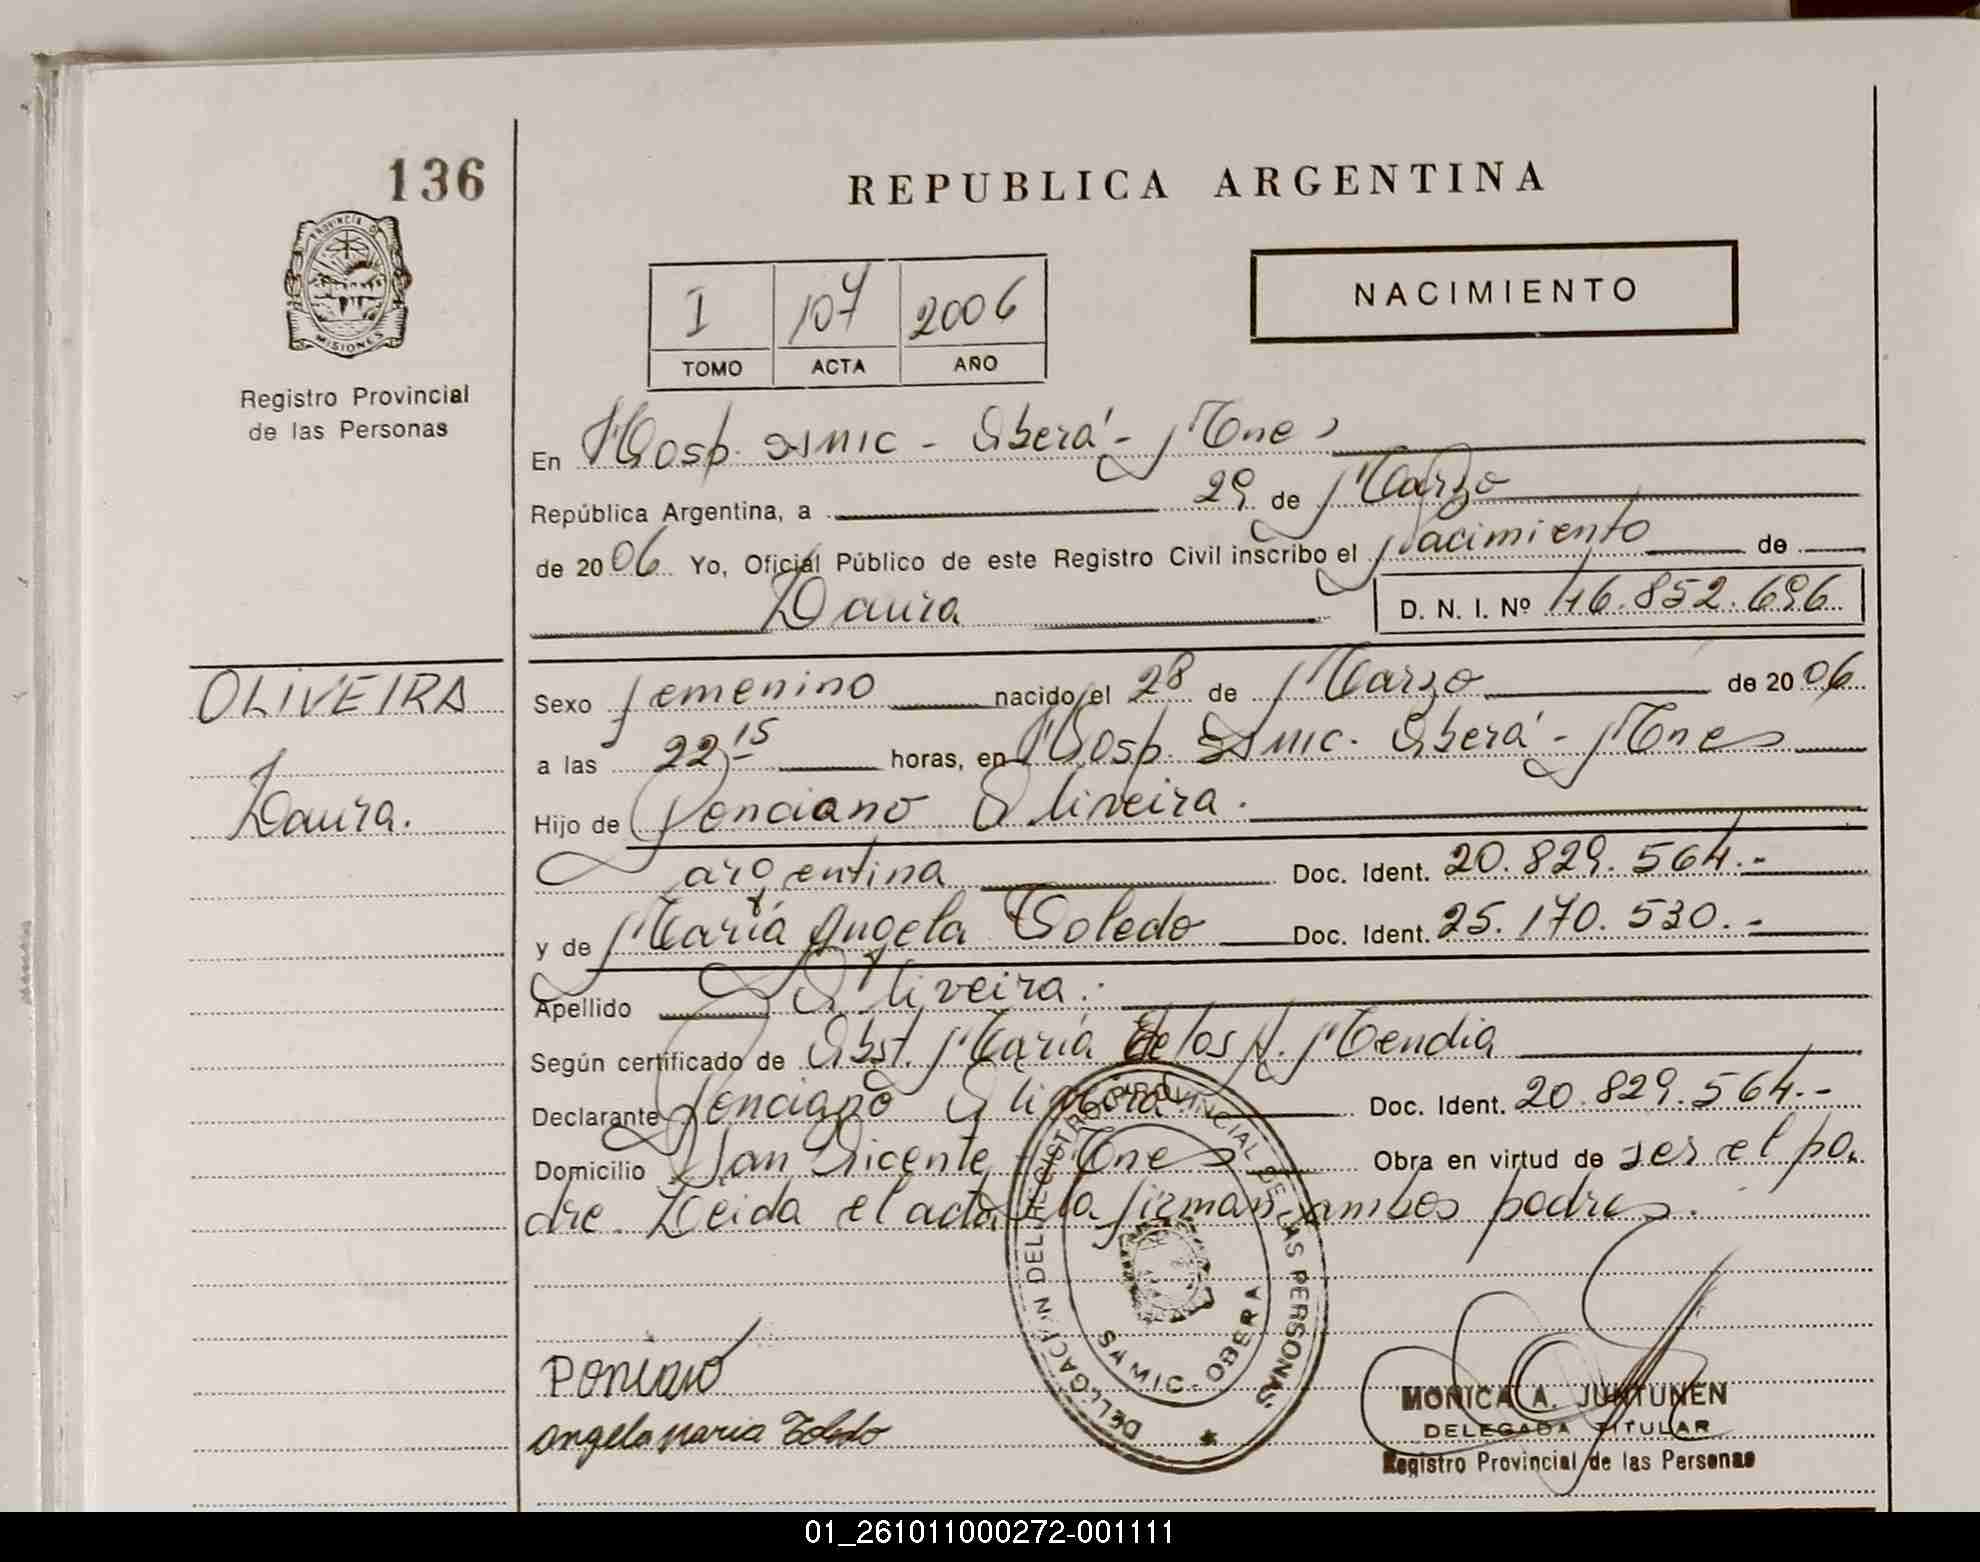 136
REPUBLICA ARGENTINA
PROVINCIA DE
MISIONES
Registro Provincial
de las Personas
NACIMIENTO
I 107 2006
TOMO ACTA AÑO
En Hosp. SAMIC - Oberá - Mnes
República Argentina, a 29 de Marzo
de 2006 Yo, Oficial Público de este Registro Civil inscribo el Nacimiento de
Laura D. N. I. Nº 46.852.696
OLIVEIRA
Laura.
Sexo femenino nacido el 28 de Marzo de 2006
a las 22 15 horas, en Hosp. SAMIC. Oberá - Mnes
Hijo de Ponciano Oliveira.
argentina Doc. Ident. 20.829.564.-
y de María Angela Toledo Doc. Ident. 25.170.530.-
Apellido Oliveira.
Según certificado de Obst. María de los A. Mendia
Declarante Ponciano Oliveira Doc. Ident. 20.829.564.-
Domicilio San Vicente - Mnes Obra en virtud de ser el pa
dre. Leida el acta la firman ambos padres.
DELEGACION DEL REGISTRO PROVINCIAL DE LAS PERSONAS
SAMIC - OBERA
Ponciano
angela maria Toledo
MONICA A. JUNTUNEN
DELEGADA TITULAR
Registro Provincial de las Personas
01_261011000272-001111